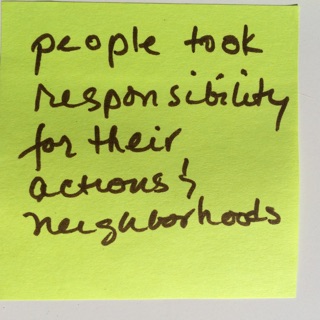 people took
responsibility
for their
actions &
neighborhoods